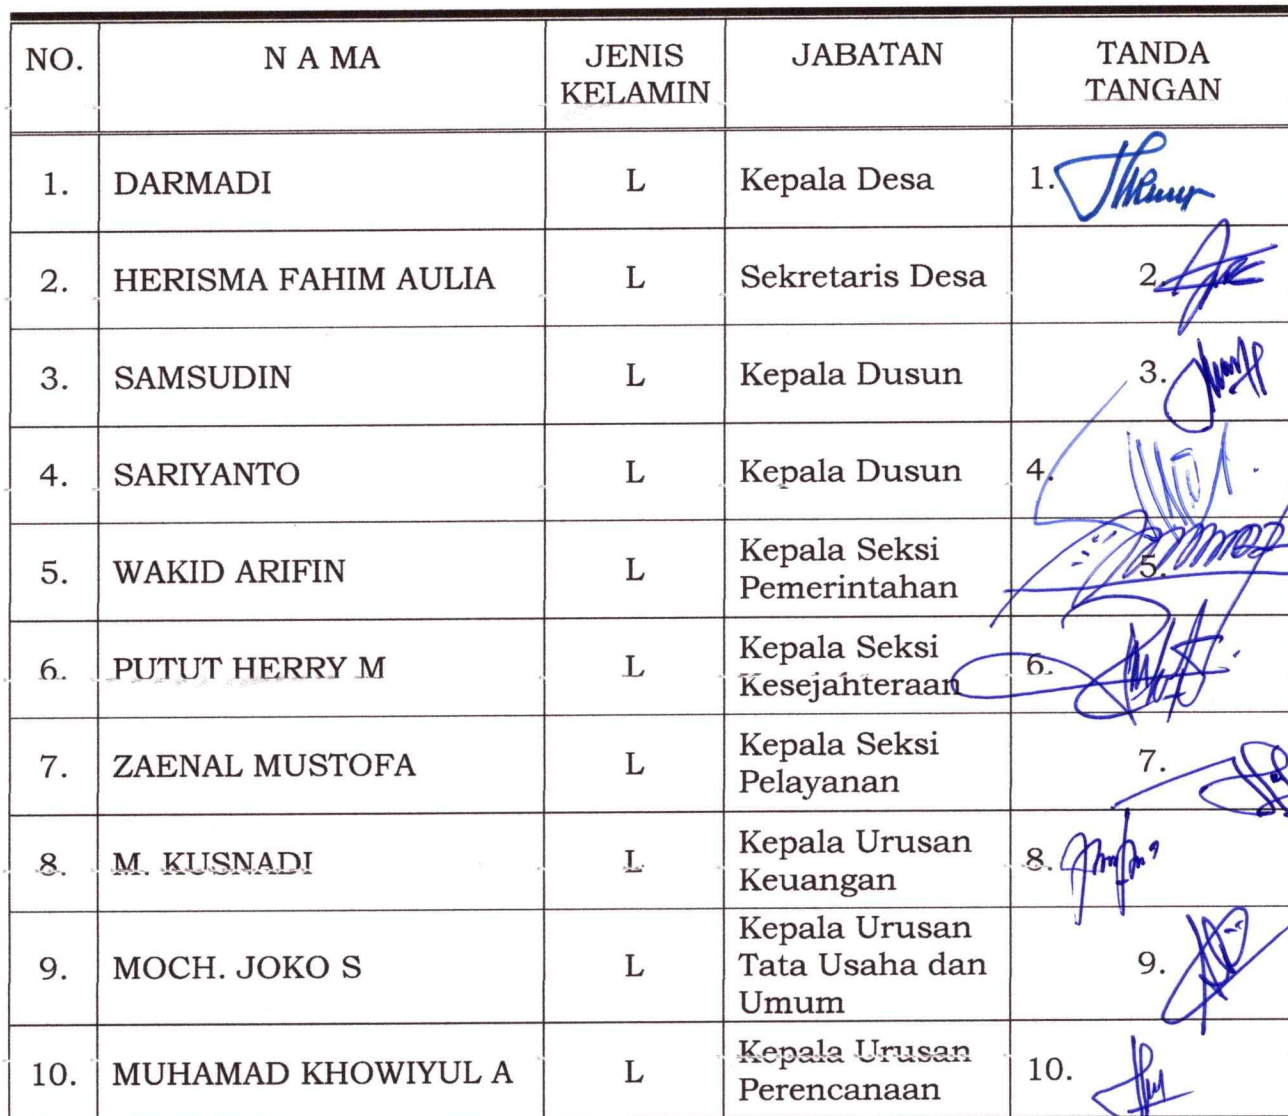 NO. N A MA JENIS KELAMIN JABATAN TANDA TANGAN
1. DARMADI L Kepala Desa 1.
2. HERISMA FAHIM AULIA L Sekretaris Desa 2.
3. SAMSUDIN L Kepala Dusun 3.
4. SARIYANTO L Kepala Dusun 4.
5. WAKID ARIFIN L Kepala Seksi Pemerintahan 5.
6. PUTUT HERRY M L Kepala Seksi Kesejahteraan 6.
7. ZAENAL MUSTOFA L Kepala Seksi Pelayanan 7.
8. M. KUSNADI L Kepala Urusan Keuangan 8.
9. MOCH. JOKO S L Kepala Urusan Tata Usaha dan Umum 9.
10. MUHAMAD KHOWIYUL A L Kepala Urusan Perencanaan 10.